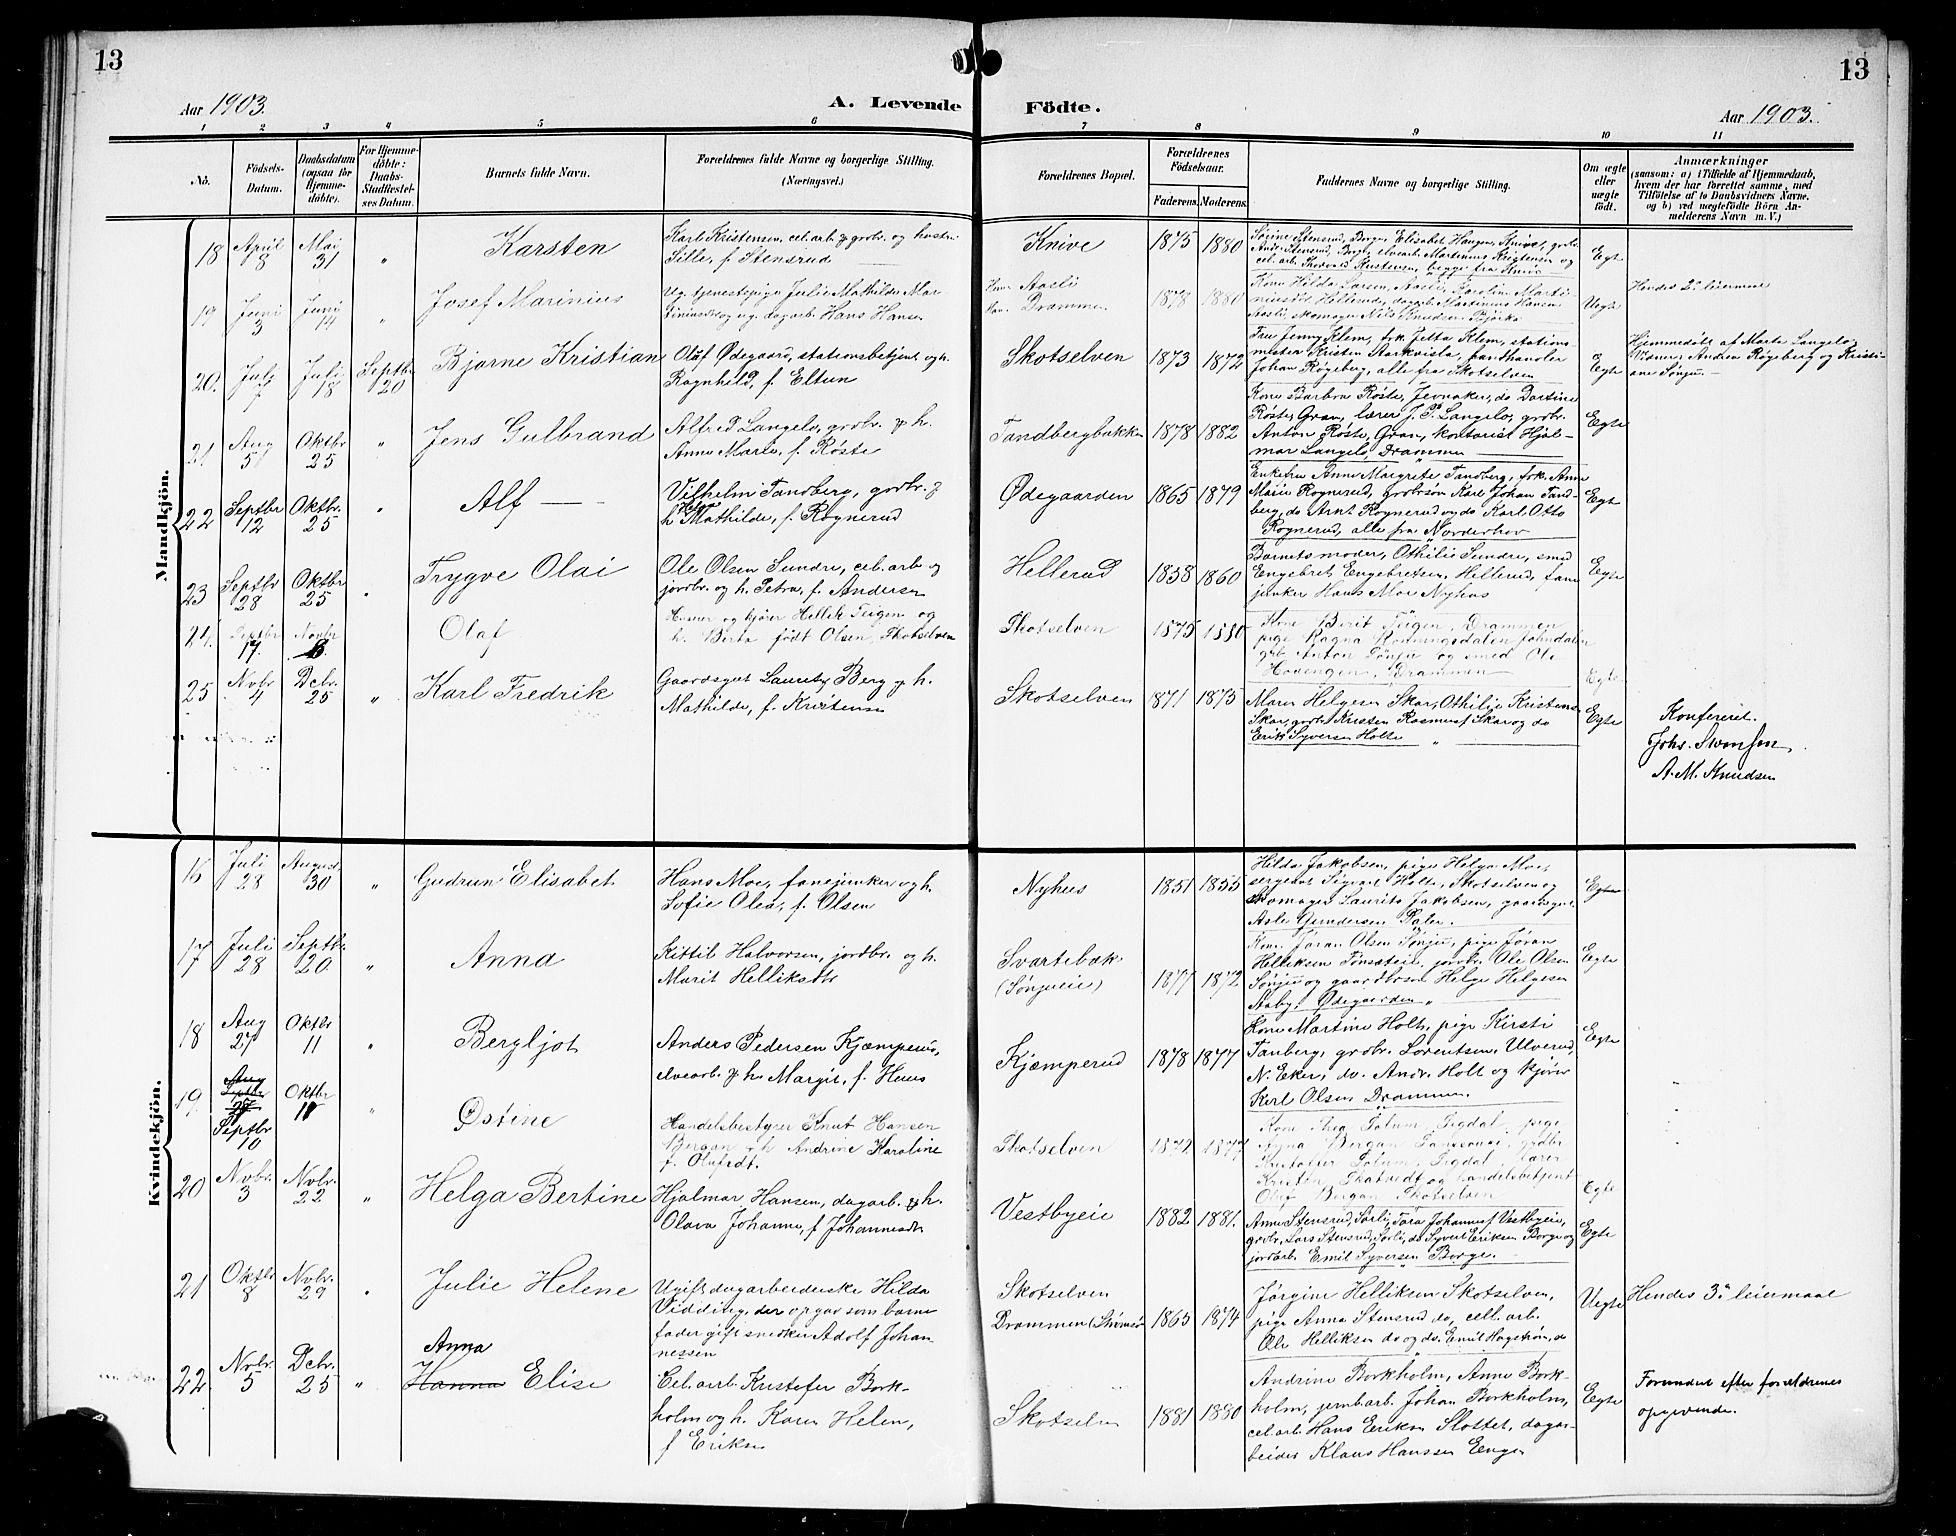 13
13
Aar 1903.
A. Levende Födte.
Aar 1903.
1 2 3 4 5 6 7 8 9 10 11
No.
Födsels-Datum.
Daabsdatum (ogsaa for Hjemmedöbte).
For Hjemmedöbte: Daabs-Stadfæstelses Datum.
Barnets fulde Navn.
Forældrenes fulde Navne og borgerlige Stilling.
(Næringsvei.)
Forældrenes Bopæl.
Forældrenes Födselsaar.
Faderens.
Moderens.
Faddernes Navne og borgerlige Stilling.
Om ægte eller uægte födt.
Anmærkninger
(saasom: a) i Tilfælde af Hjemmedaab, hvem der har forrettet samme, med Tilföielse af to Daabsvidners Navne, og b) ved uægtefödte Börn Anmelderens Navn m. V.)
Mandkjön.
18 April 8 Mai 31 " Karsten
Karl Kristensen, cel. arb. & grdbr. og hustru
Sille, f. Stensrud
Knive 1875 1880
Sørine Stensrud, Borge, Elisabet Hansen, Knive, grdbr.
Andr. Stensrud, Borge, elvearb. Martinius Kristensen og
cel. arb. Thorvald Kristensen, begge fra Knive
Egt.
19 Juni 3 Juni 14 " Josef Marinius
Ug. tjenestepige Julie Mathilde Mar-
tiniusdr og ug. dagarb. Hans Hansen
Aasli
Drammen 1878 1880
Kone Hilda Larsen, Aasli, Karoline Marti-
niusdt. Hellerud, dagarb. Martinius Hansen
Aasli, skomager Nils Knudsen Bjørke
Uegte
Hendes 2. leiermaal
20. Juli 7 Juli 18 Septbr 20 Bjarne Kristian
Olaf Ødegaard, stationsbetjent og h.
Ragnhild, f. Eltun
Skotselven 1873 1872
Fru Jenny Klem, frk. Jetta Klem, stations-
mester Kristen Starkvista, landhandler
Johan Røgeberg, alle fra Skotselven
Egte
Hjemmedøbt af Marte Langelo,
Vidner: Andrea Røgeberg og Kristi-
ane Sønju. —
21 Aug 5 Oktbr 25 " Jens Gulbrand
Alfred Langelo, grdbr. & h.
Anne Marie, f. Røste
Tandbergbakken 1878 1882
Kone Barbra Røste, Jevnaker, do Dortine
Røste, Gran, lærer J. P. Langelo, grdbr.
Anton Røste, Gran, kontorist Hjal-
mar Langelo, Drammen
Egte
22 Septbr 12 Oktbr. 25 " Alf —
Vilhelm Tandberg, grdbr. &
h. Helga Mathilde, f. Rognerud
Ødegaarden 1865 1879
Enkefru Anne Margrete Tandberg, frk. Anne
Marie Rognerud, grdbrsøn Karl Johan Tand-
berg, do Arnt Rognerud og do Karl Otto
Rognerud, alle fra Norderhov
Egte
23 Septbr 28 Oktbr 25 " Trygve Olai
Ole Olsen Sundre, cel. arb. og
jordbr. og h. Petra, f. Andersen
Hellerud 1858 1860
Barnets moder, Othilie Sundre, smed
Engebret Engebretsen, Hellerud, fane
junker Hans Moe Nyhus
Egte
24. Septbr 17 Novbr 8. Olaf
Husmer og kjører Hellik Teigen og
h. Berta født Olsen, Skotselven
Skotselven 1875 1880
Kone Berit Teigen, Drammen
pige Ragna Rønningsdalen
gdb. Anton Sønju og smed Ole
Hovengen, Drammen
Egte
25 Novbr. 4 Decbr. 25 " Karl Fredrik
Gaardsgut Laurits Berg & h.
Mathilde, f. Kristensen
Skotselven 1871 1875
Maren Helgesen Skar, Othilie Kristensen
Skar, grdbr. Kristen Rasmusf Skar og do
Erik Syversen Holte
Egte
Konfereret.
Johs. Svensen
A. M. Knudsen
Kvindekjön.
16 Juli 28 August 30 " Gudrun Elisabet
Hans Moe, fanejunker og h.
Sofie Olea, f. Olsen
Nyhus 1851 1855
Hilda Jakobsen, pige Helga Moe,
sergeant Sigvart Holte, Skotselven og
skomager Laurits Jakobsen, gaardsgut
Asle Gundersen Paler.
Egte
17 Juli 28 Septbr. 20. " Anna
Kittil Halvorsen, jordbr. og h.
Marit Helliksdtr
Svartebæk
(Sønjueie) 1877 1872
Kone Jøran Olsen Sønju, pige Jøran
Helliksen Tønsateie, jordbr. Ole Olsen
Sønju og gaardbrsøn Helge Helgesen
Aaby, Ødegaarden
Egte
18 Aug 27 Oktbr 11 " Bergljot
Anders Pedersen Kjæmperud,
elvearb. & h. Margit, f. Huus
Kjæmperud 1878 1877
Kone Martine Holt, pige Kirsti
Tanberg, grdbr. Lorentsen, Ulverud,
N. Eker, do. Andr. Holt og kjører
Karl Olsen Drammen.
Egte
19. Septbr 10 Oktbr 11 " Østine
Handelsbestyrer Knut Hansen
Bergan & h. Andrine Karoline
f. Olafsdt.
Skotselven 1872 1877
Kone Thea Totum, Sigdal, pige
Bergan
Kristoffer Totum, Sigdal, lærer
Kristen Skatvedt og handelsbetjent
Olaf Bergan Skotselven
Egte
20 Novbr. 3 Novbr. 22 " Helga Bertine
Hjalmar Hansen, dagarb. & h.
Olava Johanne, f. Johannesdtr
Vestbyeie 1882 1881.
Anne Stensrud, Sørli, Tora Johannesf Vestbyeie,
grdbr. Lars Stensrud, Sørli, do Syvert Eriksen Borge og
jordarb. Emil Syversen Borge.
Egte
21 Oktbr 8 Novbr. 29 " Julie Helene
Ugift dagarbeiderske Hilda
Vidding, der opgav som barne-
fader gift snedker Adolf Johan-
nessen
Skotselven
Drammen (Strømsø) 1865 1874
Jørgine Helliksen Skotselven,
pige Anna Stensrud do, cell. arb.
Ole Helliksen do og do. Emil Hagstrøm, do
Uegte
Hendes 3. leiermaal
22. Novbr. 5 Decbr. 25 " Anna
Hanna Elise
Cel. arb. Kristofer Bork-
holm og h. Karen Helen,
f. Eriksen
Skotselven 1881 1880
Andrine Borkholm, Anne Bork-
holm, jernbarb. Johan Borkholm,
cel. arb. Hans Eriksen Slottet, dagar-
beider Klaus Hanssen Enger
Egte
Forandret efter forældrenes
opgivende.